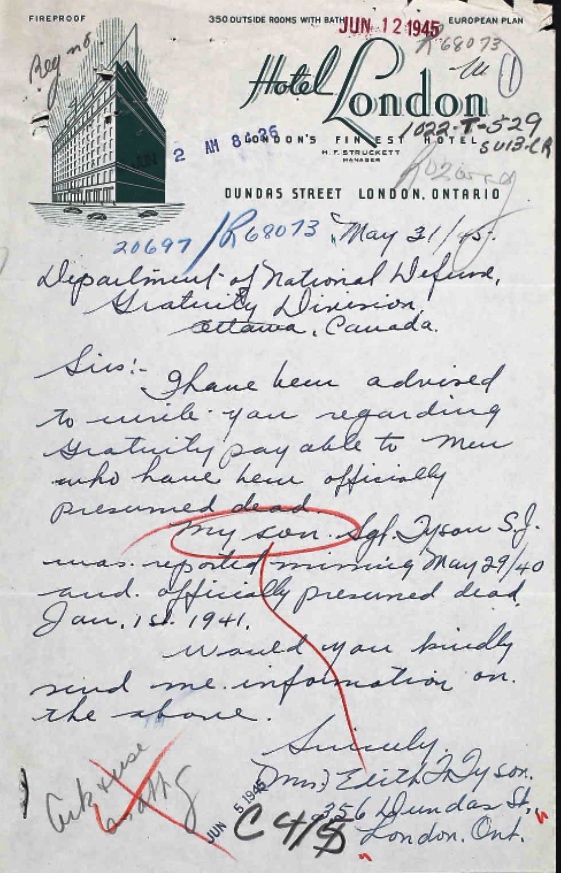 FIREPROOF
350 OUTSIDE ROOMS WITH BATH
EUROPEAN PLAN
JUN 12 1945
R68073
Reg no.
Hotel London
1022-T-529
LONDON'S FINEST HOTEL
H. F. STRUCKETT
MANAGER
JUN 2 AM 8
DUNDAS STREET LONDON, ONTARIO
20697/R68073
May 31/45.
Department of National Defense,
Gratuity Division,
Ottawa, Canada.
Sirs:-
I have been advised
to write you regarding
gratuity payable to men
who have been officially
presumed dead
My son. Sgt. Tyson S.J.
was reported missing May 29/40
and officially presumed dead
Jan. 1st. 1941.
Would you kindly
send me information on
the above.
Sincerely,
(Mrs) Edith Tyson.
356 Dundas St.,
London. Ont.
JUN 5 1945